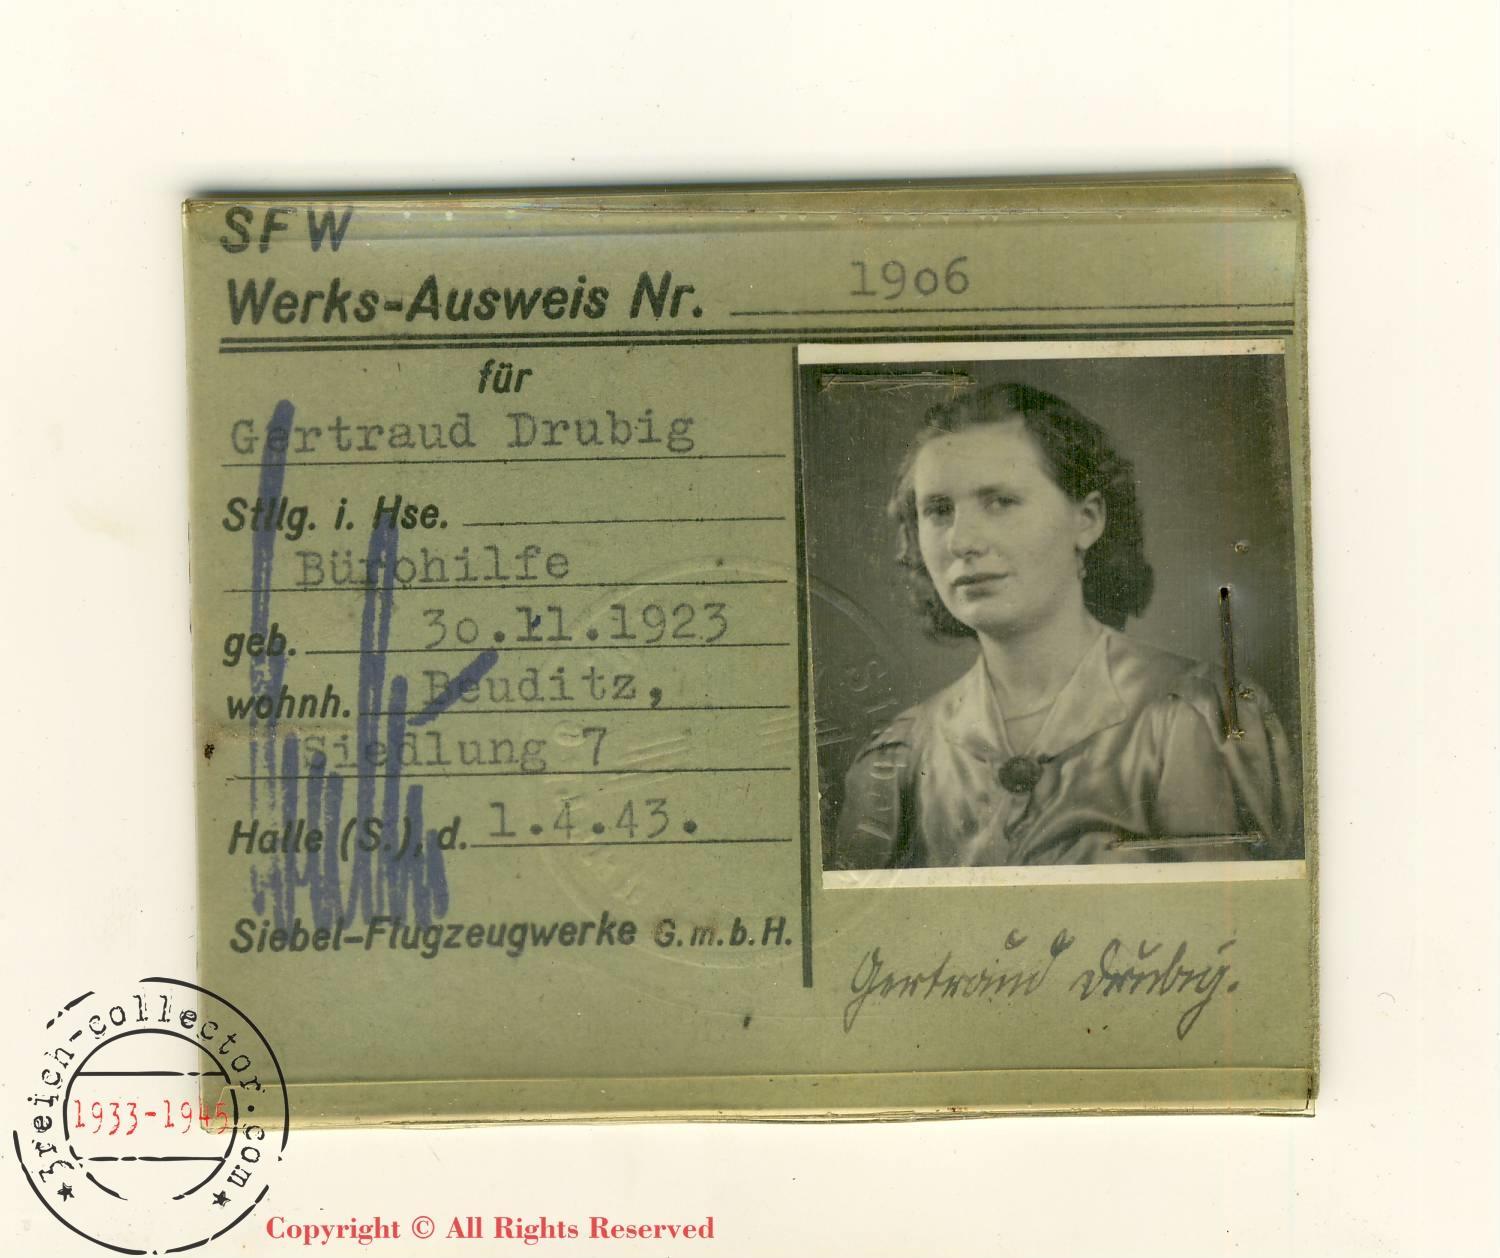 SFW
Werks-Ausweis Nr. 19o6
für
Gertraud Drubig
Stllg. i. Hse.
Bürohilfe
geb. 3o.11.1923
wohnh. Beuditz,
Siedlung 7
Halle (S.), d. 1.4.43.
Siebel-Flugzeugwerke G.m.b.H.
Gertraud Drubig.
3reich-collector.com
1933-1945
Copyright © All Rights Reserved